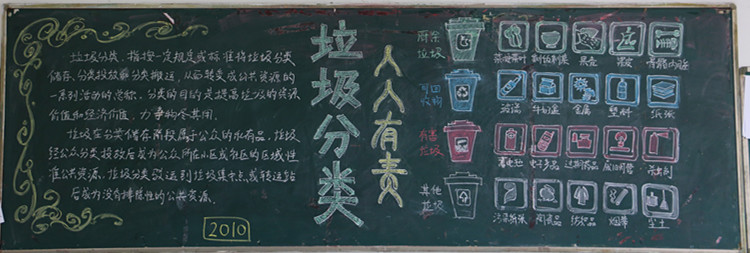 垃圾分类，指按一定规定或标准将垃圾分类
储存、分类投放和分类搬运，从而转变成公共资源的
一系列活动的总称。分类的目的是提高垃圾的资源
价值和经济价值，力争物尽其用。
垃圾在分类储存阶段属于公众的私有品，垃圾
经公众分类投放后成为公众所在小区或社区的区域性
准公共资源，垃圾分类搬运到垃圾集中点或转运站
后成为没有排除性的公共资源。
2010
垃圾分类
人人有责
厨余
垃圾
茶叶
剩饭剩菜
果壳
果皮
骨骼内脏
可回
收物
牛奶盒
金属
塑料
纸张
有害
垃圾
蓄电池
电子产品
过期药品
杀虫剂
其他
垃圾
污染纸张
陶瓷品
纺织品
烟蒂
尘土